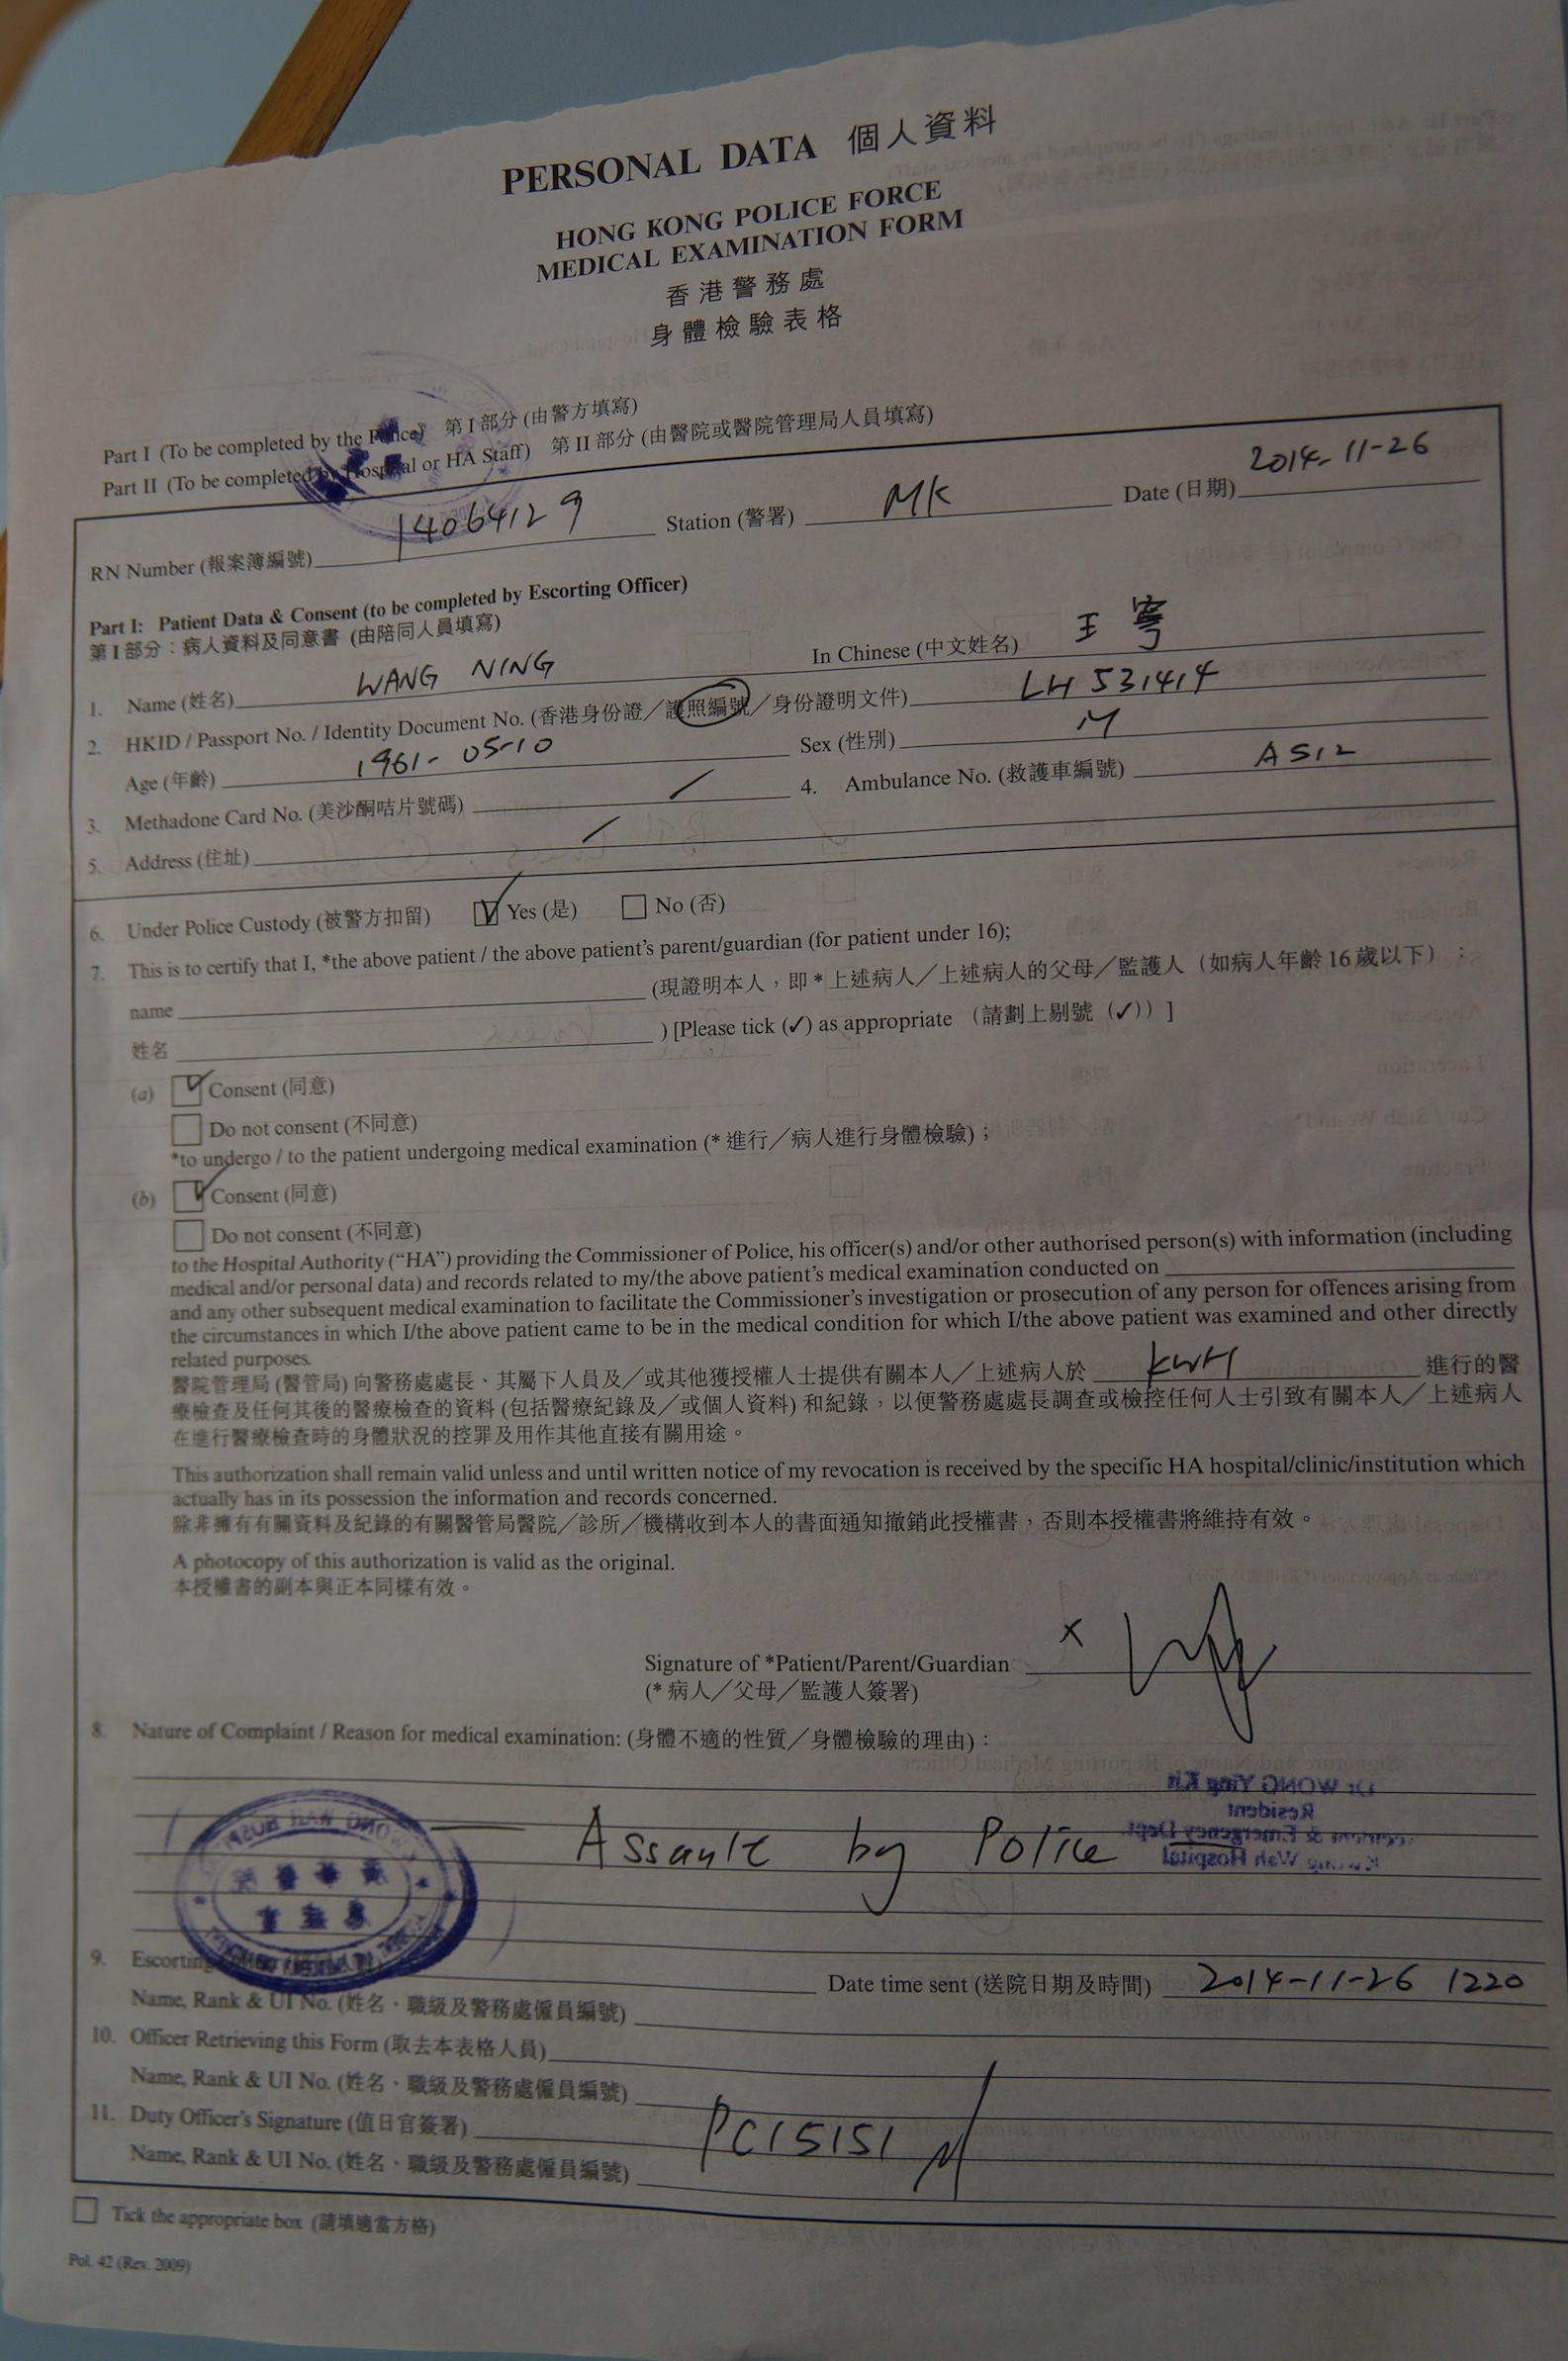 PERSONAL DATA 個人資料
HONG KONG POLICE FORCE
MEDICAL EXAMINATION FORM
香港警務處
身體檢驗表格
Part I (To be completed by the Police) 第 I 部分 (由警方填寫)
Part II (To be completed by Hospital or HA Staff) 第 II 部分 (由醫院或醫院管理局人員填寫)
RN Number (報案簿編號) 14064129 Station (警署) MK Date (日期) 2014-11-26
Part I: Patient Data & Consent (to be completed by Escorting Officer)
第 I 部分：病人資料及同意書 (由陪同人員填寫)
1. Name (姓名) WANG NING In Chinese (中文姓名) 王寧
2. HKID / Passport No. / Identity Document No. (香港身份證／護照編號／身份證明文件) LH 531414
Age (年齡) 1961-05-10 Sex (性別) M
3. Methadone Card No. (美沙酮咭片號碼) / 4. Ambulance No. (救護車編號) A512
5. Address (住址) /
6. Under Police Custody (被警方扣留) ✓ Yes (是) No (否)
7. This is to certify that I, *the above patient / the above patient's parent/guardian (for patient under 16);
name (現證明本人，即 * 上述病人／上述病人的父母／監護人（如病人年齡 16 歲以下）：
姓名 ) [Please tick (✓) as appropriate （請劃上剔號（✓））]
(a) ✓ Consent (同意)
Do not consent (不同意)
*to undergo / to the patient undergoing medical examination (* 進行／病人進行身體檢驗)；
(b) ✓ Consent (同意)
Do not consent (不同意)
to the Hospital Authority (“HA”) providing the Commissioner of Police, his officer(s) and/or other authorised person(s) with information (including
medical and/or personal data) and records related to my/the above patient's medical examination conducted on
and any other subsequent medical examination to facilitate the Commissioner's investigation or prosecution of any person for offences arising from
the circumstances in which I/the above patient came to be in the medical condition for which I/the above patient was examined and other directly
related purposes.
醫院管理局 (醫管局) 向警務處處長、其屬下人員及／或其他獲授權人士提供有關本人／上述病人於 KWH 進行的醫
療檢查及任何其後的醫療檢查的資料 (包括醫療紀錄及／或個人資料) 和紀錄，以便警務處處長調查或檢控任何人士引致有關本人／上述病人
在進行醫療檢查時的身體狀況的控罪及用作其他直接有關用途。
This authorization shall remain valid unless and until written notice of my revocation is received by the specific HA hospital/clinic/institution which
actually has in its possession the information and records concerned.
除非擁有有關資料及紀錄的有關醫管局醫院／診所／機構收到本人的書面通知撤銷此授權書，否則本授權書將維持有效。
A photocopy of this authorization is valid as the original.
本授權書的副本與正本同樣有效。
Signature of *Patient/Parent/Guardian x
(* 病人／父母／監護人簽署)
8. Nature of Complaint / Reason for medical examination: (身體不適的性質／身體檢驗的理由)：
Dr WONG Ying Kit
Resident
Accident & Emergency Dept
Kwong Wah Hospital
Assault by Police
9. Escorting Date time sent (送院日期及時間) 2014-11-26 1220
Name, Rank & UI No. (姓名、職級及警務處僱員編號)
10. Officer Retrieving this Form (取去本表格人員)
Name, Rank & UI No. (姓名、職級及警務處僱員編號)
11. Duty Officer's Signature (值日官簽署) PC15151
Name, Rank & UI No. (姓名、職級及警務處僱員編號)
Tick the appropriate box (請填適當方格)
Pol. 42 (Rev. 2009)